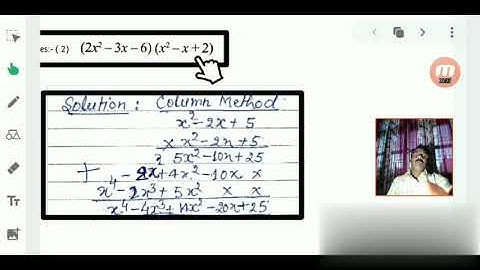 es:- ( 2 ) (2x² – 3x – 6) (x² – x + 2)
Solution : Column Method
x² - 2x + 5
x x² - 2x + 5
5x² - 10x + 25
+ - 2x + 4x² - 10x x
x⁴ - 2x³ + 5x² x x
x⁴ - 4x³ + 14x² - 20x + 25